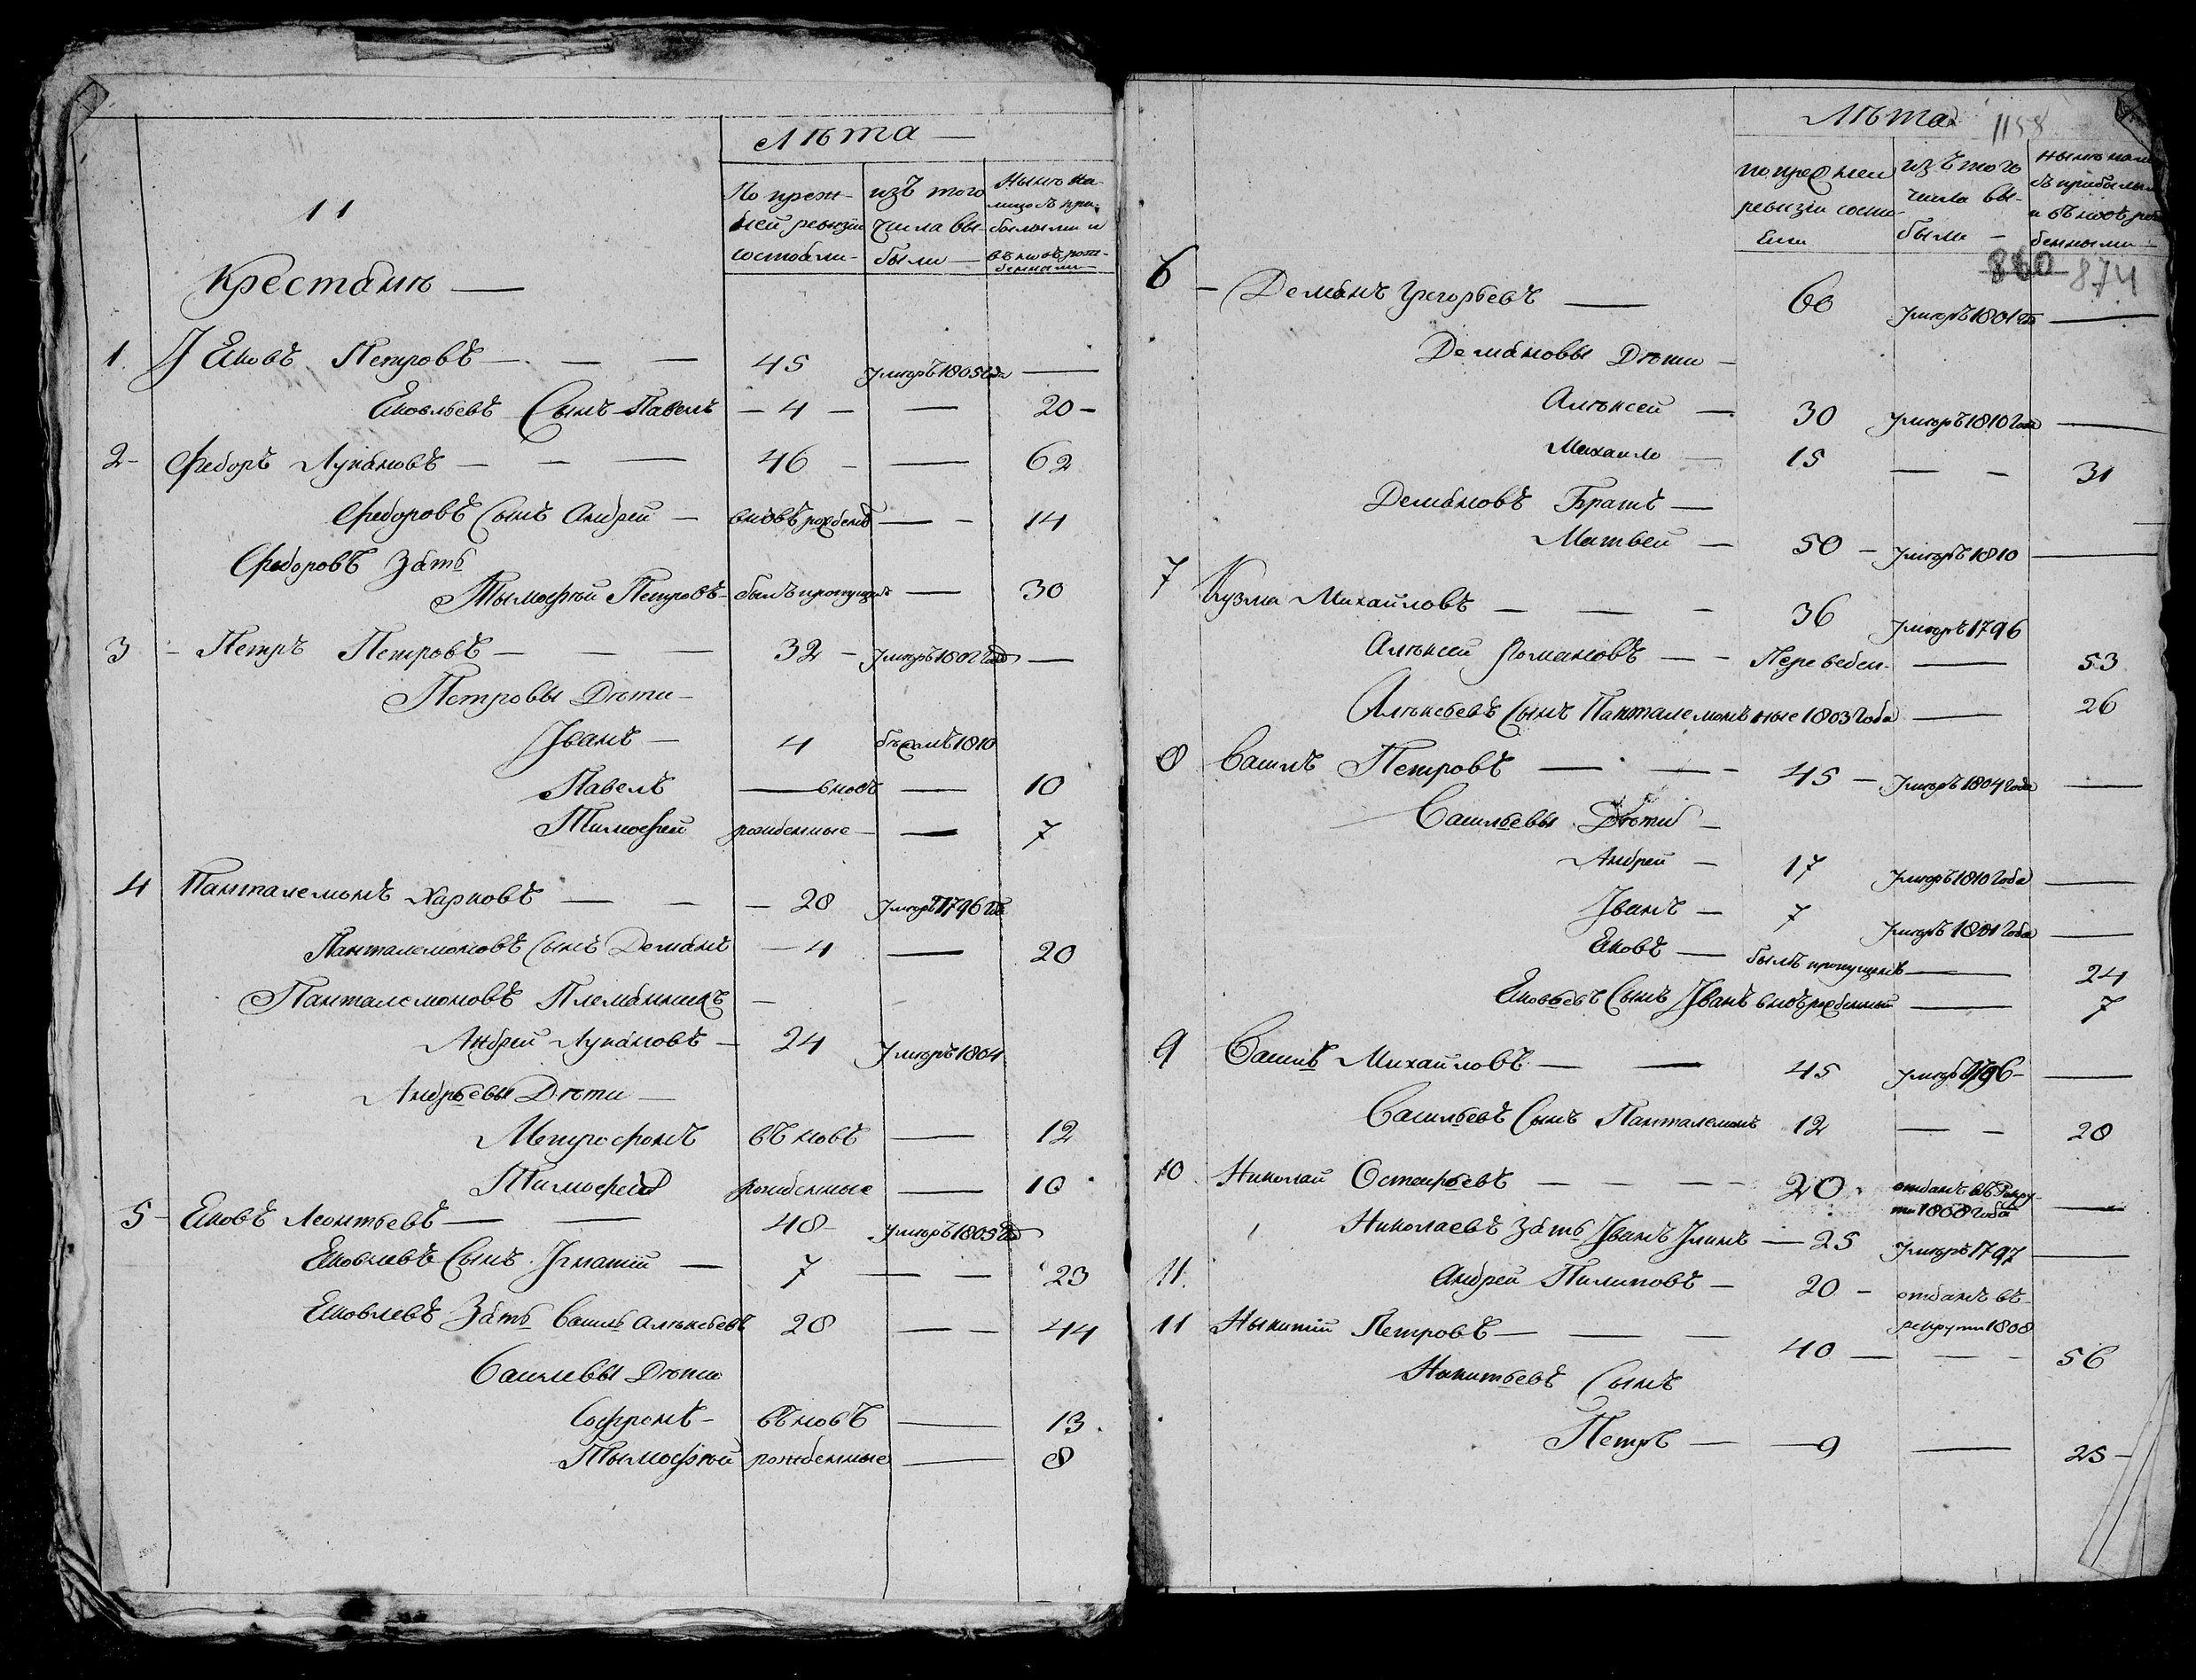 Лѣта —
По преж- изъ того Нынѣ на-
ней ревизіи числа вы- лицо съ при-
состояли были — былыми и
вновь рож-
денными
11
Крестьянъ —
1. Іяковъ Петровъ — — — 45 умеръ 1805 года —
Яковлевъ Сынъ Павелъ — 4 — — 20 —
2 — Федоръ Лукяновъ — — — 46 — — 62
Федоровъ Сынъ Андрей — вновь рожденъ — — 14
Федоровъ Зять
Тымофѣй Петровъ — былъ пропущенъ — 30
3 — Петръ Петровъ — — — 32 — умеръ 1802 года —
Петровы Дѣти —
Іванъ — 4 бѣжалъ 1810
Павелъ — вновь — 10
Тимофей рожденные — — 7
4 Панталемонъ Харковъ — — — 28 умеръ 1796 года
Панталемоновъ Сынъ Демянъ — 4 — 20
Панталемоновъ Племянникъ —
Андрей Лукяновъ — 24 умеръ 1804
Андрѣевы Дѣти —
Митрофонъ въновь — 12
Тимофей рожденные — 10
5 — Яковъ Леонтьевъ — — 48 — умеръ 1805 года
Яковлевъ Сынъ Ігнатій — 7 — — 23
Яковлевъ Зять Василь Алѣксѣевъ 28 — — 44
Василевы Дѣти
Софронъ — въновь — 13.
Тымофѣй рожденные — 8
Лѣта 1158
по прежнеи изъ того нынѣ нали
ревизіи состо- числа вы- съ прибылы
яли были — и въновь рож
денными —
880 874
6 — Демянъ Григорьевъ — 60 умеръ 1801 го —
Демяновы Дѣти —
Алѣксей — 30 умеръ 1810 года —
Михаило — 15 — — 31
Демяновъ Братъ —
Матвей — 50 — умеръ 1810 —
7 Кузма Михайловъ — — — 36 умеръ 1796
Алѣксей Романовъ — — Переведен — 53
Алѣксѣевъ Сынъ Панталемонъ ные 1803 года — 26
8 Василъ Петровъ — — — 45 — умеръ 1804 года —
Василѣевы Дѣти —
Андрей — 17 умеръ 1810 года —
Іванъ — 7 умеръ 1801 года —
Яковъ — былъ пропущенъ — 24
Яковлевъ Сынъ Іванъ вновь рожденный — 7
9 Василъ Михайловъ — — 45 умеръ 1796 — —
Василѣевъ Сынъ Панталемонъ 12 — — 28
10 Николай Остапѣевъ — — — — 20 отданъ въ Рекру-
ти 1808 года —
Николаевъ Зять Іванъ Ілинъ — 25 умеръ 1797 —
11. Андрей Пилиповъ — 20 — отданъ въ
рекрути 1808
11 Ныкитій Петровъ — — — 40 — — — 56
Никитѣевъ Сынъ
Петръ — — 9 — 25 —